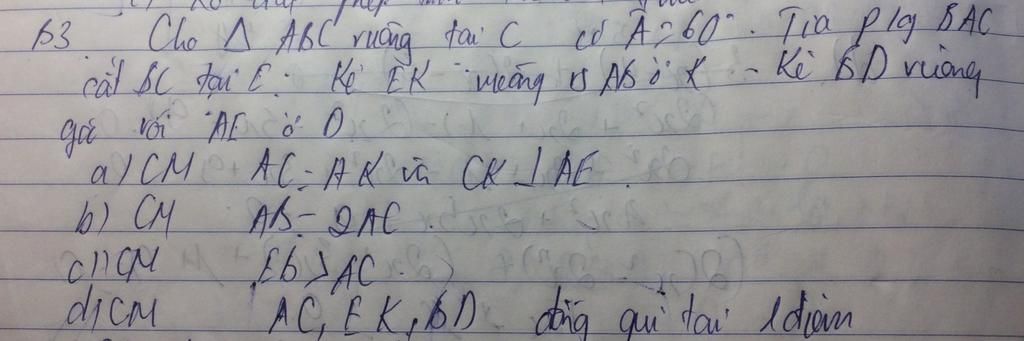 B3 Cho Δ ABC vuông tại C có A = 60°. Tia p/g BAC
cắt BC tại E. Kẻ EK vuông vs AB ở K - Kẻ BD vuông
góc với AE ở D
a) CM AC = AK và CK ⊥ AE.
b) CM AB = 2AC.
c) CM EB > AC.
d) CM AC, EK, BD đồng qui tại 1 điểm